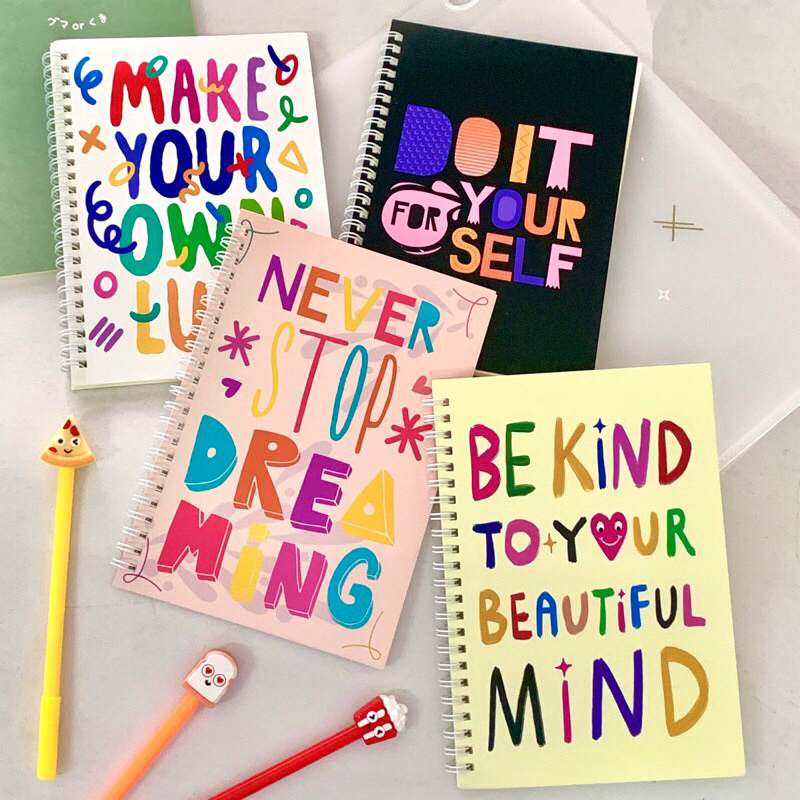 MAKE
YOUR
OWN
LU
DO IT
FOR YOUR
SELF
NEVER
STOP
DREA
MiNG
BE KiND
TO YOUR
BEAUTiFUL
MiND